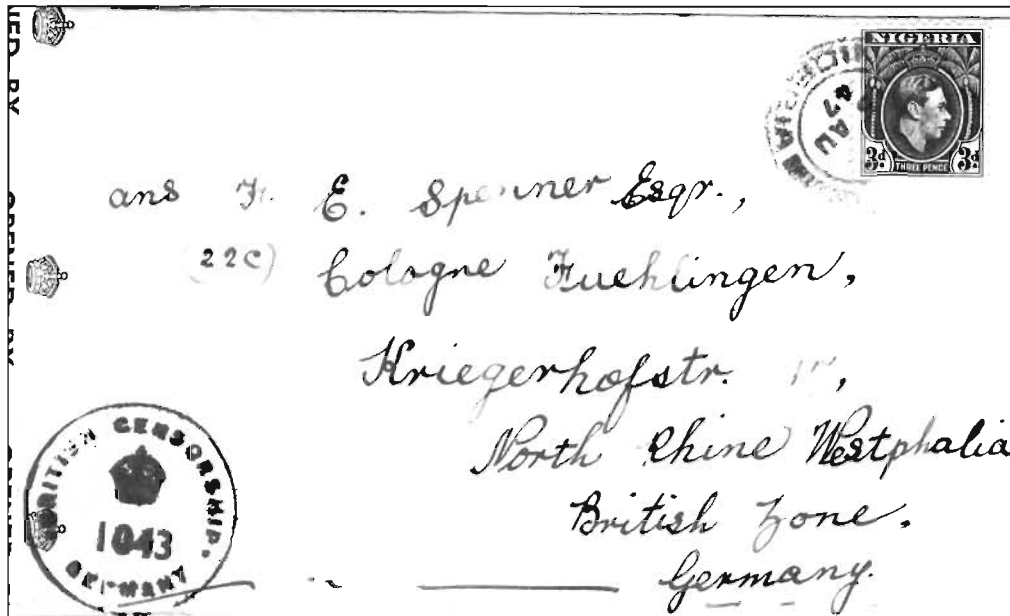 NED BY
OPENED BY
OPENE
NIGERIA
3d 3d
THREE PENCE
NIGERIA
AU
47
ans Fr. E. Spenner Esqr.,
(22c) Cologne Fuehlingen,
Kriegerhofstr. ,
North Rhine Westphalia
British Zone.
Germany.
BRITISH CENSORSHIP.
1043
GERMANY